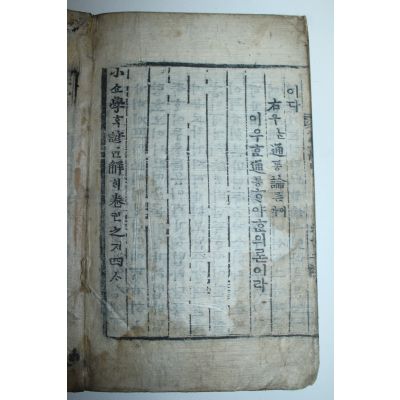 이다
右우ᄂᆞᆫ通통論론
이우흔通통ᄒᆞ야의론이라
小쇼學ᄒᆞᆨ諺언解ᄒᆡ卷권之지四ᄉᆞ